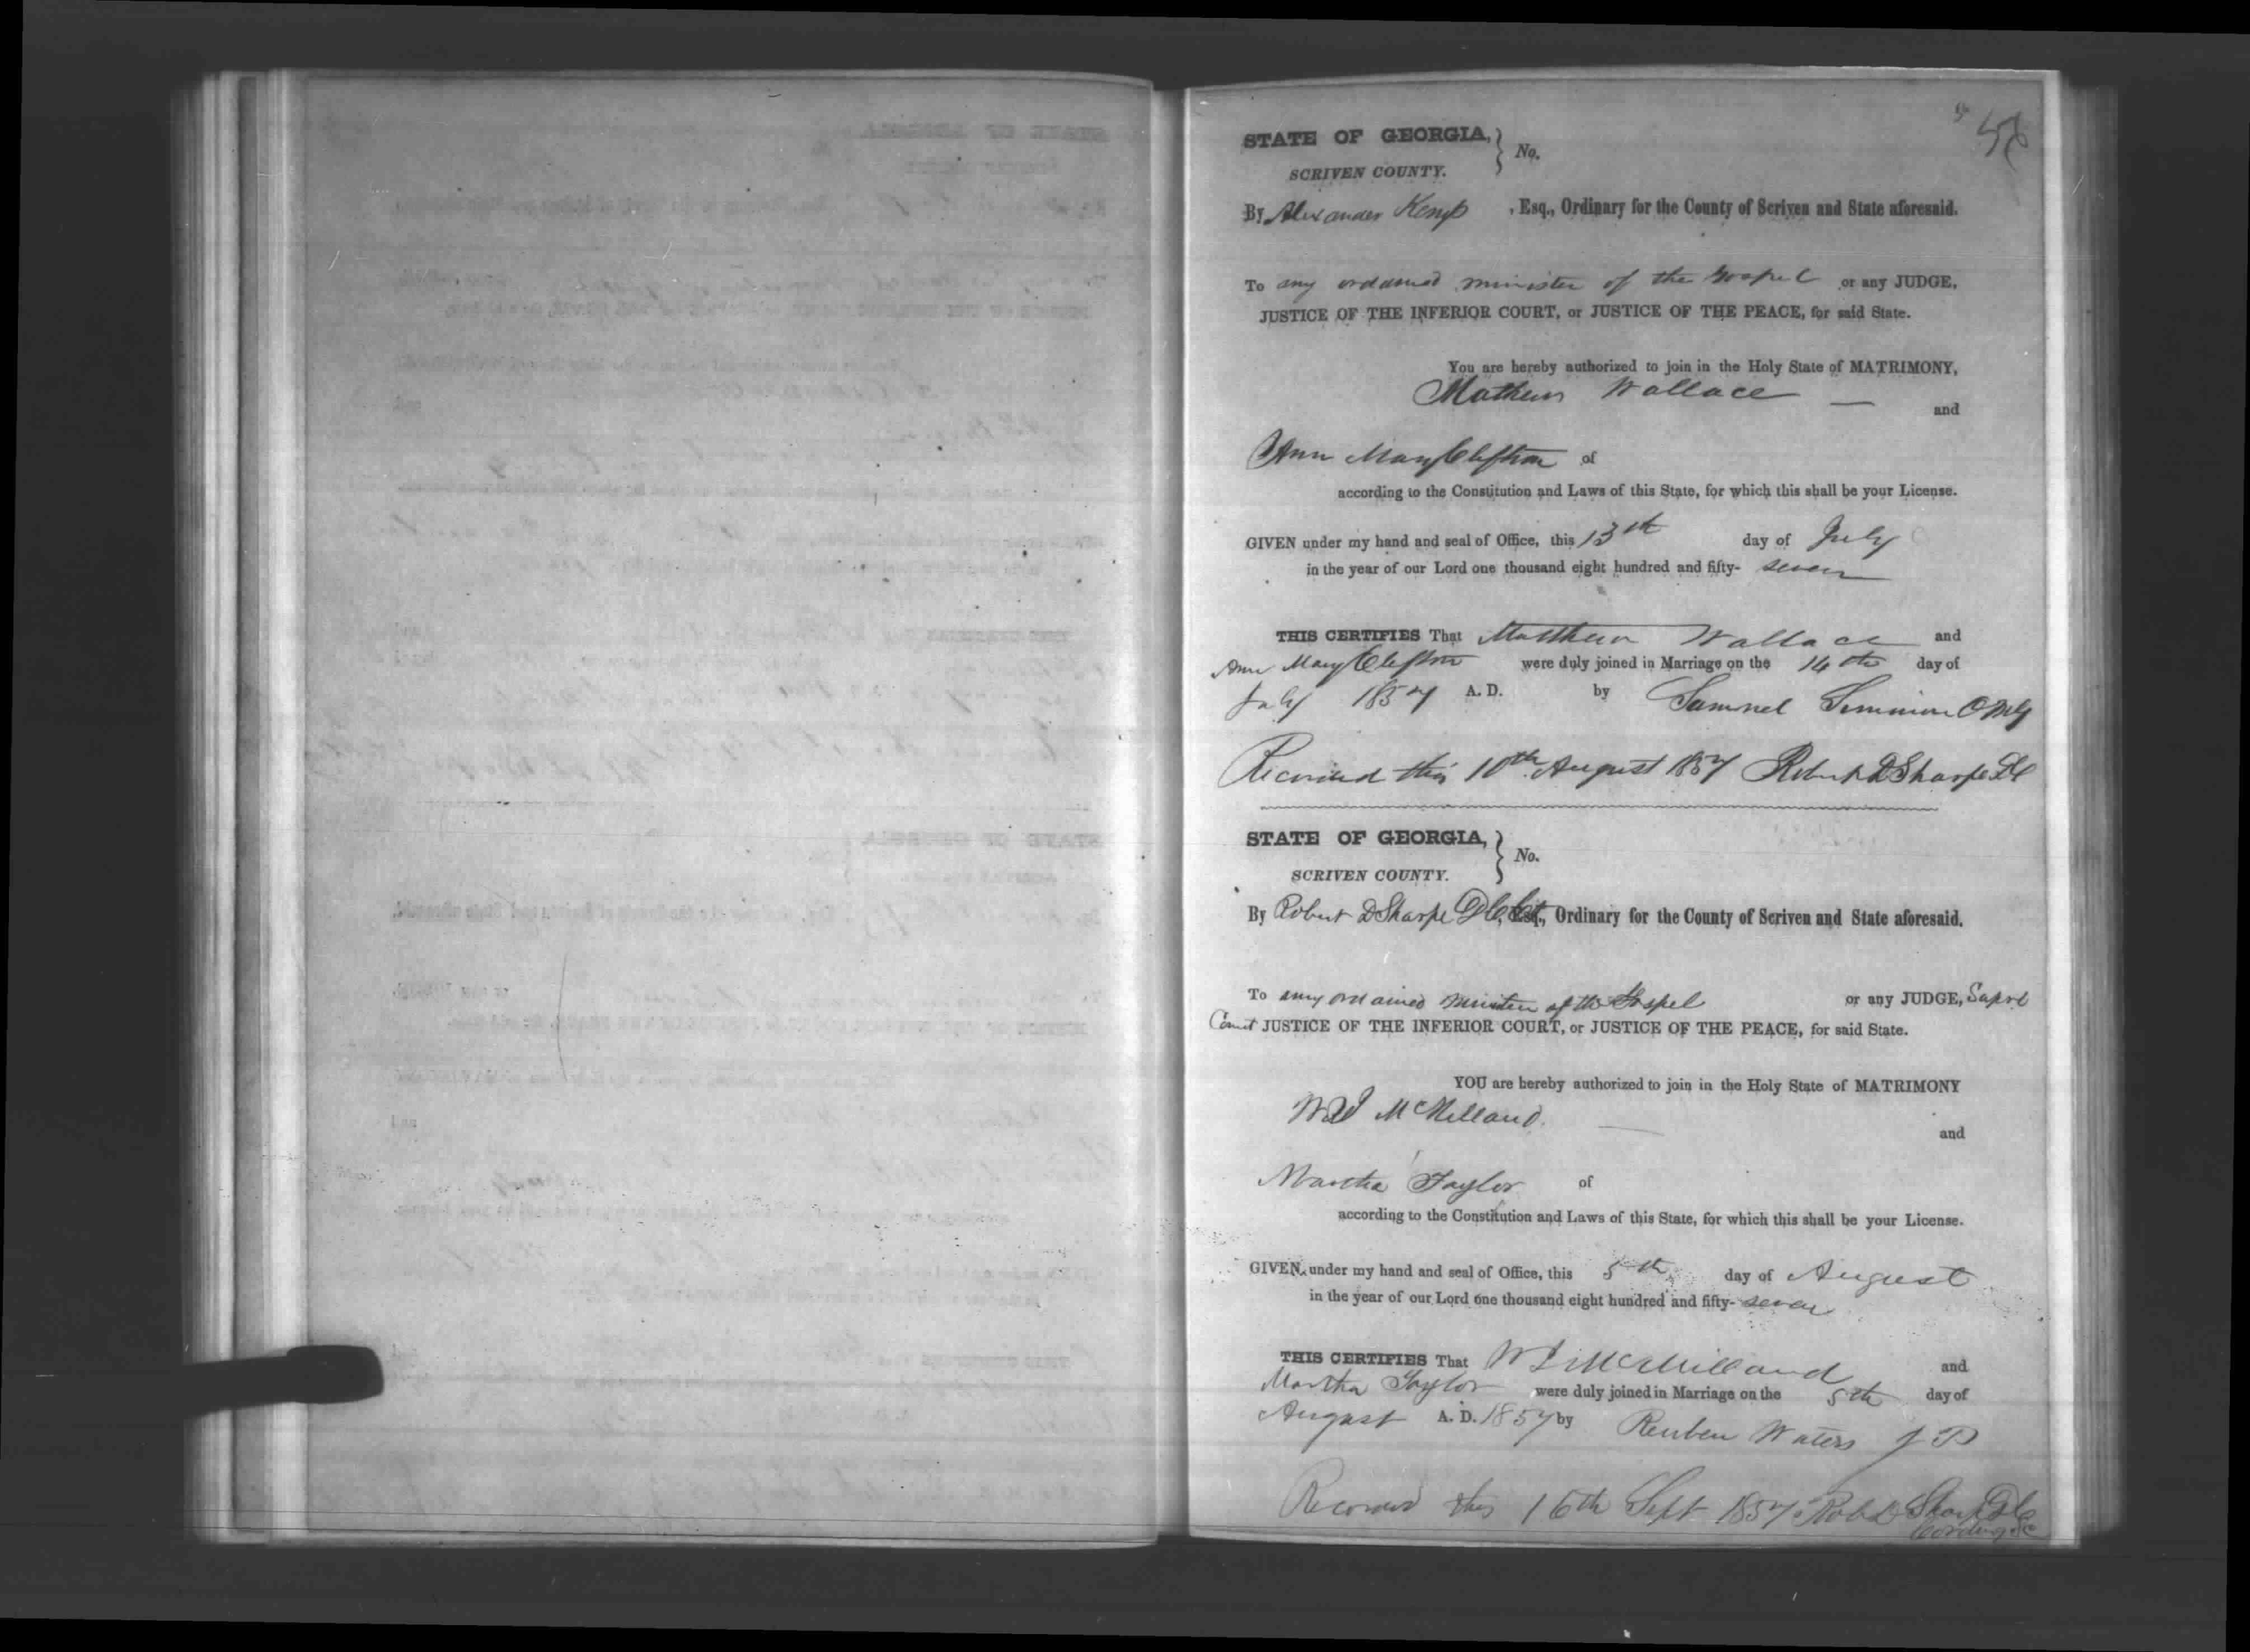 58
STATE OF GEORGIA, } No.
SCRIVEN COUNTY.
By Alexander Kemp , Esq., Ordinary for the County of Scriven and State aforesaid.
To any ordained minister of the Gospel or any JUDGE,
JUSTICE OF THE INFERIOR COURT, or JUSTICE OF THE PEACE, for said State.
You are hereby authorized to join in the Holy State of MATRIMONY,
Mathew Wallace — and
Ann Mary Clifton of
according to the Constitution and Laws of this State, for which this shall be your License.
GIVEN under my hand and seal of Office, this 13th day of July
in the year of our Lord one thousand eight hundred and fifty- seven
THIS CERTIFIES That Matthew Wallace and
Ann Mary Clifton were duly joined in Marriage on the 14th day of
July 1857 A. D. by Samuel
Recorded this 10th August 1857 Robert D Sharpe
STATE OF GEORGIA, } No.
SCRIVEN COUNTY.
By Robert D Sharpe Esq., Ordinary for the County of Scriven and State aforesaid.
To any ordained minister of the Gospel or any JUDGE, Supr
Court JUSTICE OF THE INFERIOR COURT, or JUSTICE OF THE PEACE, for said State.
YOU are hereby authorized to join in the Holy State of MATRIMONY
McMilland and
Martha Taylor of
according to the Constitution and Laws of this State, for which this shall be your License.
GIVEN under my hand and seal of Office, this 5th day of August
in the year of our Lord one thousand eight hundred and fifty- seven
THIS CERTIFIES That McMilland and
Martha Taylor were duly joined in Marriage on the 5th day of
August A. D. 1857 by Reuben Waters J P
Recorded this 16th Sept 1857 Rob D Sharp